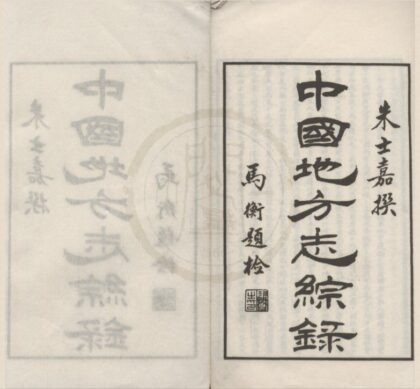 朱士嘉撰
中國地方志綜錄
馬衡題檢